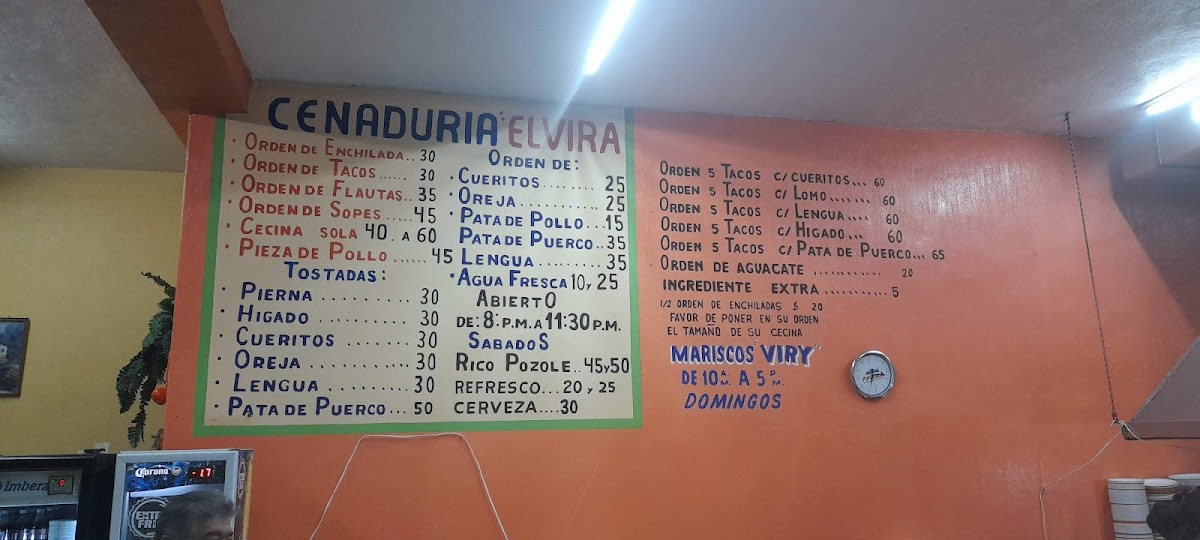 CENADURIA "ELVIRA
· ORDEN DE ENCHILADA.. 30
· ORDEN DE TACOS...... 30
· ORDEN DE FLAUTAS.. 35
· ORDEN DE SOPES ..... 45
· CECINA SOLA 40. A 60
· PIEZA DE POLLO ...... 45
TOSTADAS:
· PIERNA .......... 30
· HIGADO .......... 30
· CUERITOS ........ 30
· OREJA ........... 30
· LENGUA ......... 30
· PATA DE PUERCO... 50
ORDEN DE:
· CUERITOS........ 25
· OREJA........... 25
· PATA DE POLLO...15
PATA DE PUERCO..35
· LENGUA ......... 35
· AGUA FRESCA 10 y 25
ABIERTO
DE: 8: P.M. A 11:30 P.M.
SABADOS
RICO POZOLE..45 y 50
REFRESCO...20 y 25
CERVEZA....30
ORDEN 5 TACOS C/ CUERITOS... 60
ORDEN 5 TACOS C/ LOMO....... 60
ORDEN 5 TACOS C/ LENGUA.... 60
ORDEN 5 TACOS C/ HIGADO... 60
ORDEN 5 TACOS C/ PATA DE PUERCO... 65
ORDEN DE AGUACATE ............ 20
INGREDIENTE EXTRA........... 5
1/2 ORDEN DE ENCHILADAS $ 20
FAVOR DE PONER EN SU ORDEN
EL TAMAÑO DE SU CECINA
MARISCOS "VIRY"
DE 10 A.M. A 5 P.M.
DOMINGOS
Imbera
Corona
-1.7